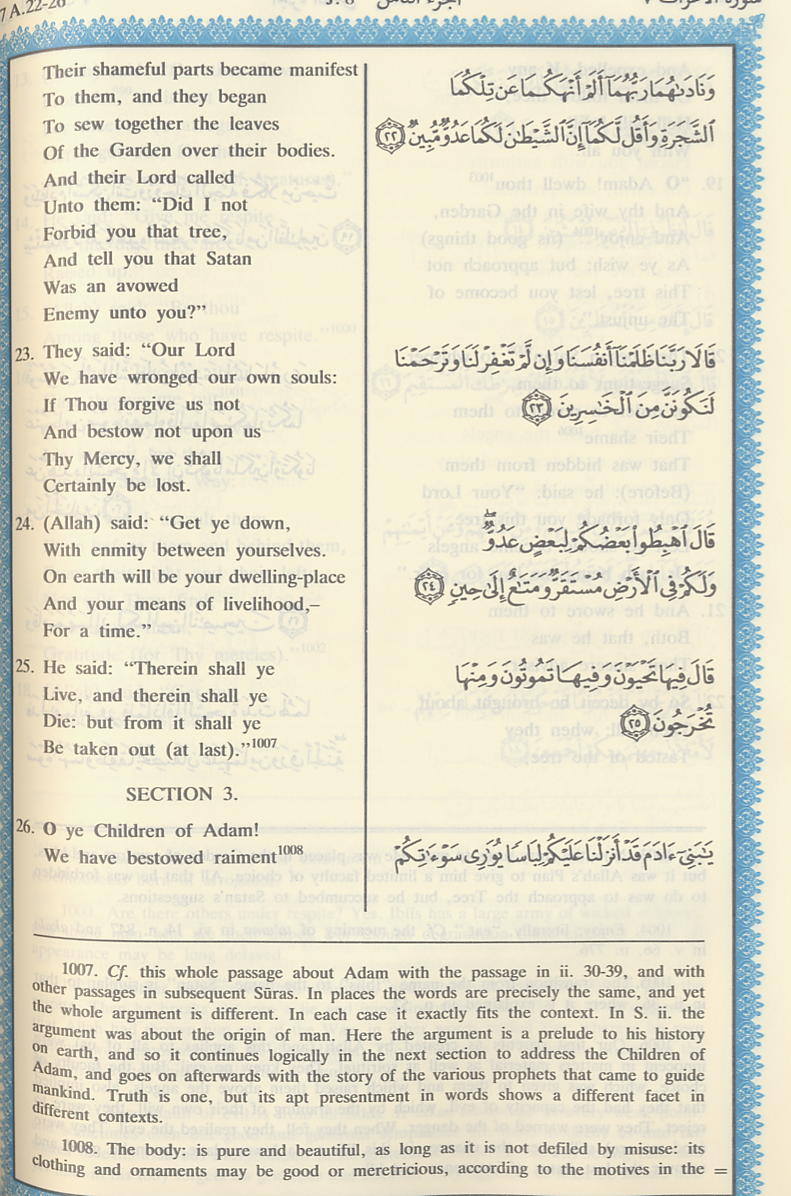 7 A.22-26
الجزء الثامن
سورة الأعراف ٧
Their shameful parts became manifest
To them, and they began
To sew together the leaves
Of the Garden over their bodies.
And their Lord called
Unto them: “Did I not
Forbid you that tree,
And tell you that Satan
Was an avowed
Enemy unto you?”
وَنَادَىٰهُمَا رَبُّهُمَآ أَلَمْ أَنْهَكُمَا عَن تِلْكُمَا
ٱلشَّجَرَةِ وَأَقُل لَّكُمَآ إِنَّ ٱلشَّيْطَٰنَ لَكُمَا عَدُوٌّ مُّبِينٌ ﴿٢٢﴾
23. They said: “Our Lord
We have wronged our own souls:
If Thou forgive us not
And bestow not upon us
Thy Mercy, we shall
Certainly be lost.
قَالَا رَبَّنَا ظَلَمْنَآ أَنفُسَنَا وَإِن لَّمْ تَغْفِرْ لَنَا وَتَرْحَمْنَا
لَنَكُونَنَّ مِنَ ٱلْخَٰسِرِينَ ﴿٢٣﴾
24. (Allah) said: “Get ye down,
With enmity between yourselves.
On earth will be your dwelling-place
And your means of livelihood,–
For a time.”
قَالَ ٱهْبِطُوا۟ بَعْضُكُمْ لِبَعْضٍ عَدُوٌّ ۖ
وَلَكُمْ فِى ٱلْأَرْضِ مُسْتَقَرٌّ وَمَتَٰعٌ إِلَىٰ حِينٍ ﴿٢٤﴾
25. He said: “Therein shall ye
Live, and therein shall ye
Die: but from it shall ye
Be taken out (at last).”1007
قَالَ فِيهَا تَحْيَوْنَ وَفِيهَا تَمُوتُونَ وَمِنْهَا
تُخْرَجُونَ ﴿٢٥﴾
SECTION 3.
26. O ye Children of Adam!
We have bestowed raiment1008
يَٰبَنِىٓ ءَادَمَ قَدْ أَنزَلْنَا عَلَيْكُمْ لِبَاسًا يُوَٰرِى سَوْءَٰتِكُمْ
1007. Cf. this whole passage about Adam with the passage in ii. 30-39, and with
other passages in subsequent Sūras. In places the words are precisely the same, and yet
the whole argument is different. In each case it exactly fits the context. In S. ii. the
argument was about the origin of man. Here the argument is a prelude to his history
on earth, and so it continues logically in the next section to address the Children of
Adam, and goes on afterwards with the story of the various prophets that came to guide
mankind. Truth is one, but its apt presentment in words shows a different facet in
different contexts.
1008. The body: is pure and beautiful, as long as it is not defiled by misuse: its
clothing and ornaments may be good or meretricious, according to the motives in the =